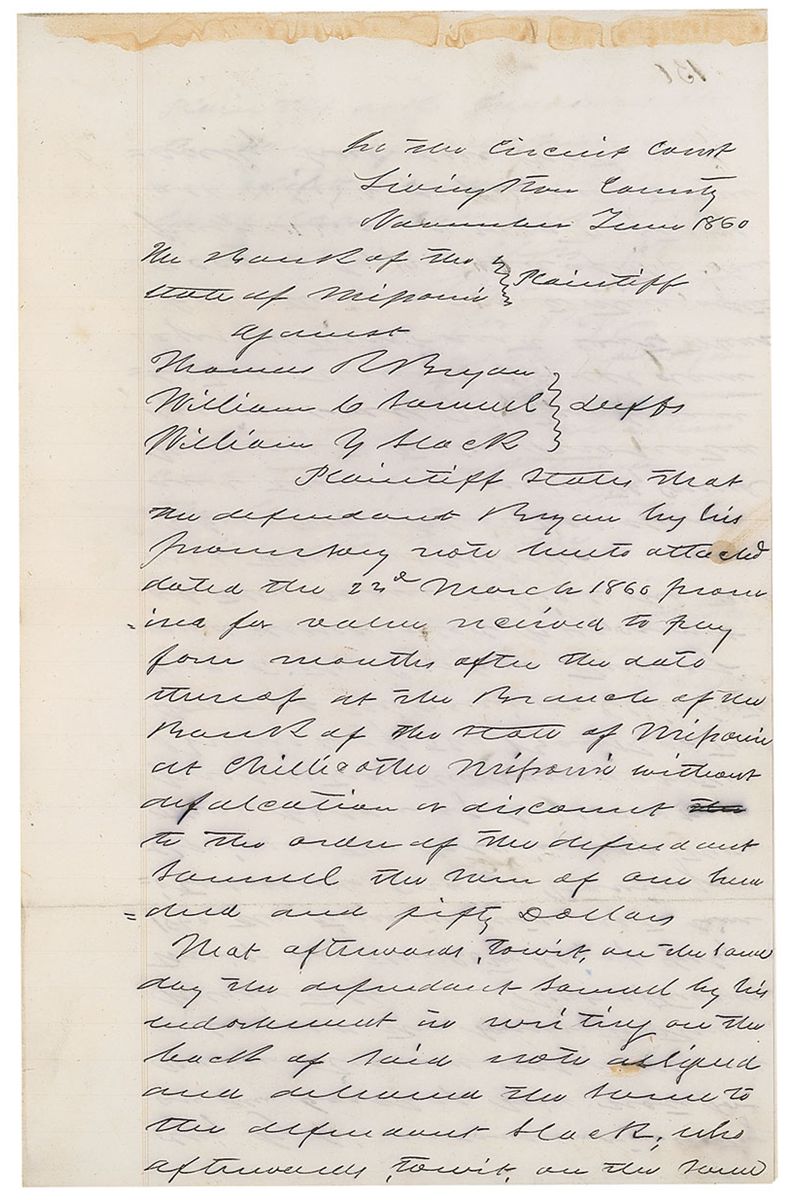 In the Circuit Court
Livingston County
November Term 1860
The Bank of the
State of Missouri } Plaintiff
against
Thomas R Bryan
William C Samuel } Deffts
William Y Slack
Plaintiff states that
the defendant Bryan by his
promissory note hereto attached
dated the 22d March 1860 prom
=ised for value received to pay
four months after the date
thereof at the Branch of the
Bank of the State of Missouri
at Chillicothe Missouri without
defalcation or discount the
to the order of the defendant
Samuel the sum of one hun
=dred and fifty Dollars
That afterwards, towit, on the same
day the defendant Samuel by his
endorsement in writing on the
back of said note assigned
and delivered the same to
the defendant Slack, who
afterwards, towit, on the same